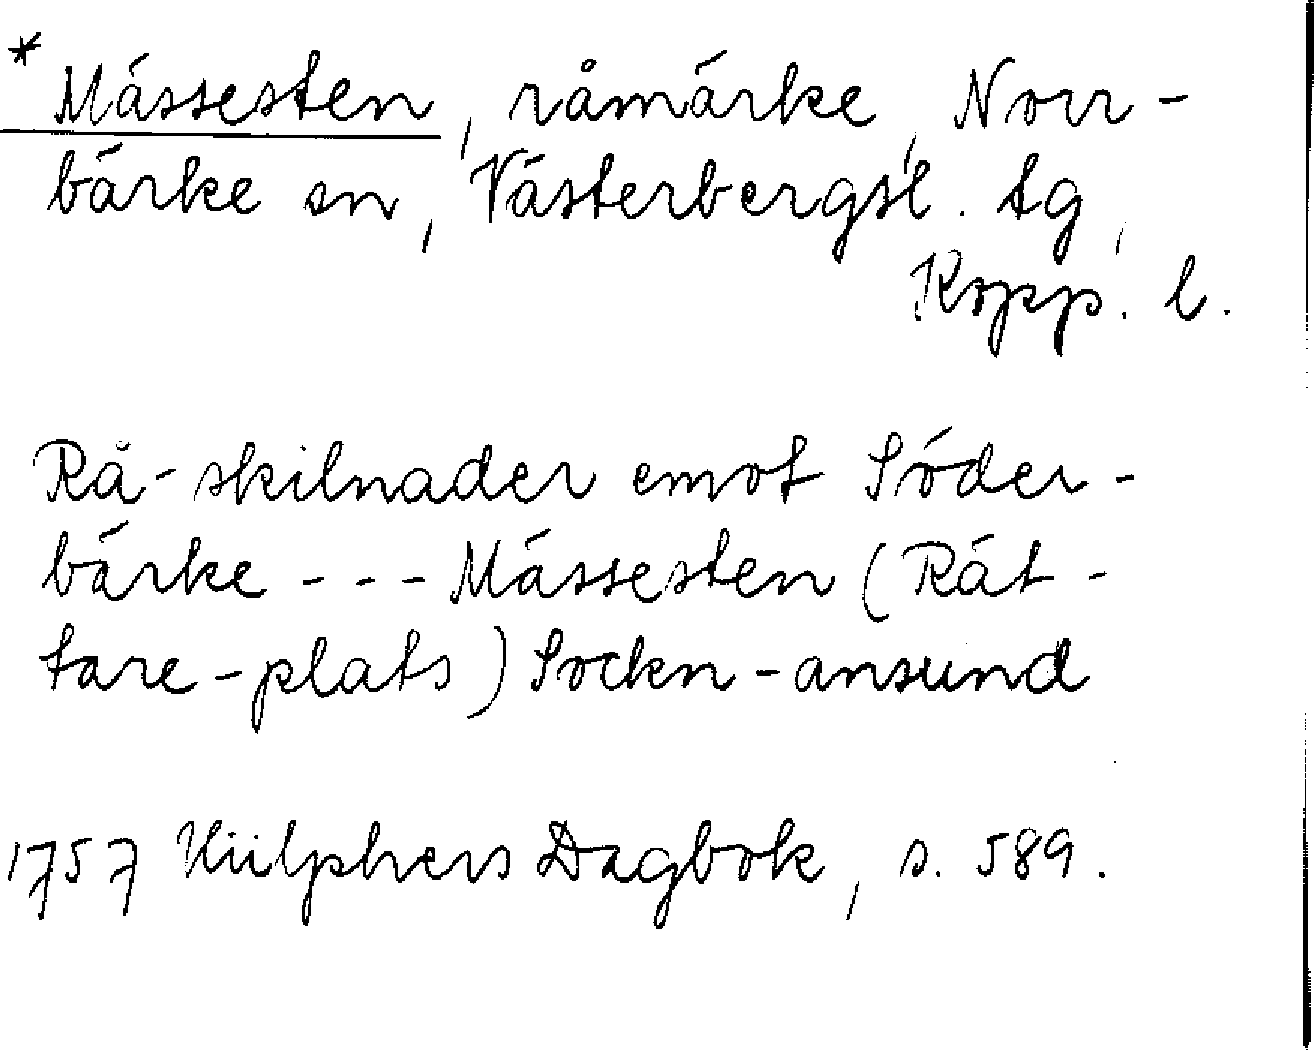 * Mässesten, råmärke, Norr-
bärke sn, Västerbergsl. tg,
Kopp. l.
Rå-skilnader emot Söder-
bärke --- Mässesten (Rät-
tare-plats) Sockn-ansund
1757 Hülphers Dagbok, s. 589.